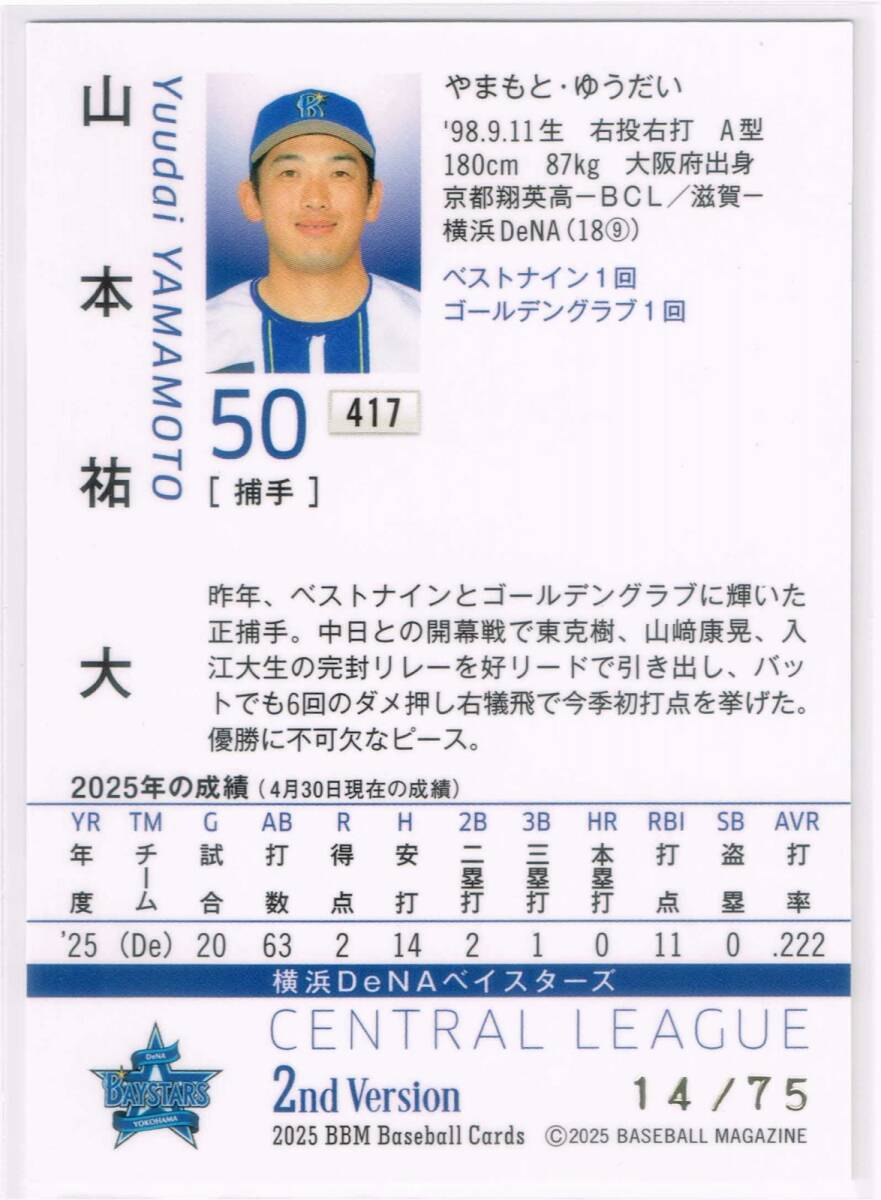 山本祐大
Yuudai YAMAMOTO
B
やまもと・ゆうだい
'98.9.11生 右投右打 A型
180cm 87kg 大阪府出身
京都翔英高－BCL／滋賀－
横浜DeNA(18⑨)
ベストナイン1回
ゴールデングラブ1回
50
417
[捕手]
昨年、ベストナインとゴールデングラブに輝いた
正捕手。中日との開幕戦で東克樹、山﨑康晃、入
江大生の完封リレーを好リードで引き出し、バッ
トでも6回のダメ押し右犠飛で今季初打点を挙げた。
優勝に不可欠なピース。
2025年の成績(4月30日現在の成績)
YR TM G AB R H 2B 3B HR RBI SB AVR
年度 チーム 試合 打数 得点 安打 二塁打 三塁打 本塁打 打点 盗塁 打率
'25 (De) 20 63 2 14 2 1 0 11 0 .222
横浜DeNAベイスターズ
CENTRAL LEAGUE
DeNA
BAYSTARS
YOKOHAMA
2nd Version
14/75
2025 BBM Baseball Cards ©2025 BASEBALL MAGAZINE